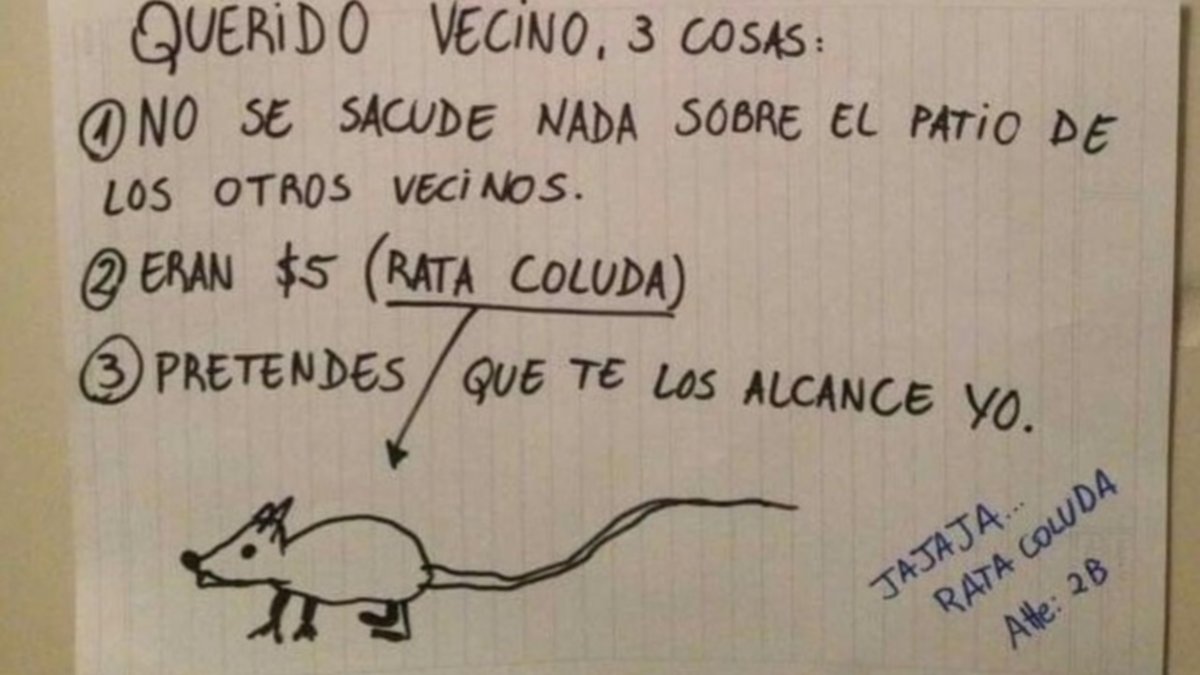 QUERIDO VECINO, 3 COSAS:
① NO SE SACUDE NADA SOBRE EL PATIO DE
LOS OTROS VECINOS.
② ERAN $5 (RATA COLUDA)
③ PRETENDES QUE TE LOS ALCANCE YO.
JAJAJA...
RATA COLUDA
Atte: 2B